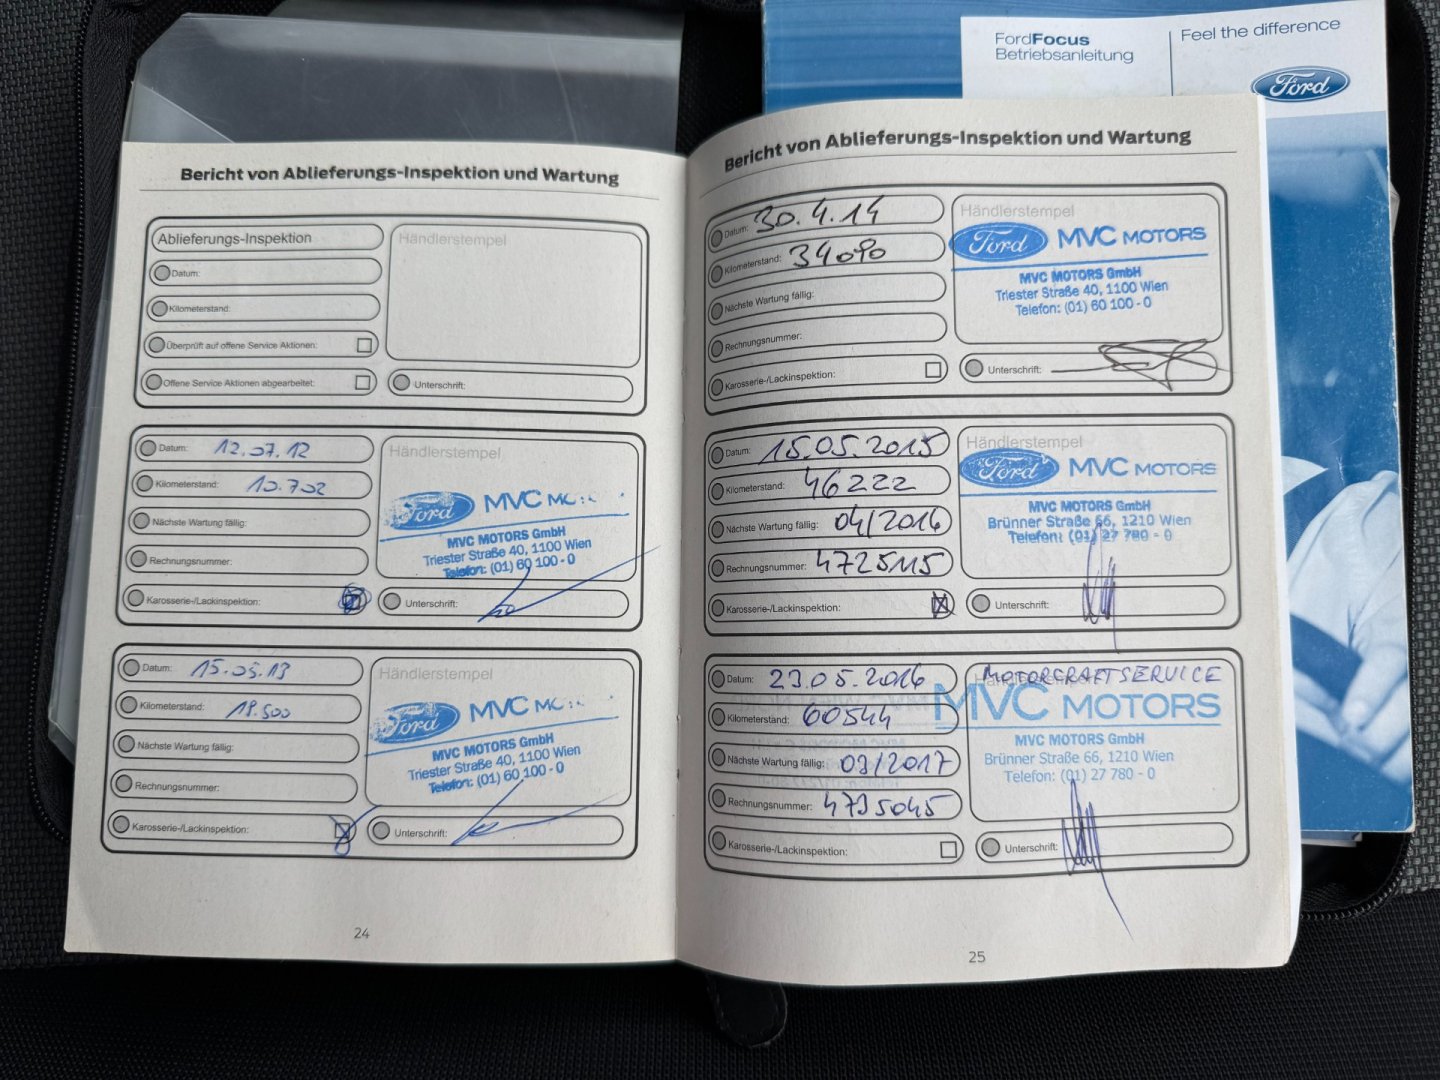 FordFocus
Betriebsanleitung
Feel the difference
Ford
Bericht von Ablieferungs-Inspektion und Wartung
Ablieferungs-Inspektion
Händlerstempel
Datum:
Kilometerstand:
Überprüft auf offene Service Aktionen:
Offene Service Aktionen abgearbeitet:
Unterschrift:
Datum: 12.07.12
Kilometerstand: 10.702
Nächste Wartung fällig:
Rechnungsnummer:
Karosserie-/Lackinspektion:
Händlerstempel
Ford MVC
MVC MOTORS GmbH
Triester Straße 40, 1100 Wien
Telefon: (01) 60 100 - 0
Unterschrift:
Datum: 15.05.13
Kilometerstand: 19.500
Nächste Wartung fällig:
Rechnungsnummer:
Karosserie-/Lackinspektion:
Händlerstempel
Ford MVC
MVC MOTORS GmbH
Triester Straße 40, 1100 Wien
Telefon: (01) 60 100 - 0
Unterschrift:
24
Bericht von Ablieferungs-Inspektion und Wartung
Datum: 30.4.14
Kilometerstand: 34090
Nächste Wartung fällig:
Rechnungsnummer:
Karosserie-/Lackinspektion:
Händlerstempel
Ford MVC MOTORS
MVC MOTORS GmbH
Triester Straße 40, 1100 Wien
Telefon: (01) 60 100 - 0
Unterschrift:
Datum: 15.05.2015
Kilometerstand: 46222
Nächste Wartung fällig: 04/2016
Rechnungsnummer: 4725115
Karosserie-/Lackinspektion:
Händlerstempel
Ford MVC MOTORS
MVC MOTORS GmbH
Brünner Straße 66, 1210 Wien
Telefon: (01) 27 780 - 0
Unterschrift:
Datum: 23.05.2016
Kilometerstand: 60544
Nächste Wartung fällig: 03/2017
Rechnungsnummer: 4735045
Karosserie-/Lackinspektion:
Händlerstempel
MOTORCRAFTSERVICE
MVC MOTORS
MVC MOTORS GmbH
Brünner Straße 66, 1210 Wien
Telefon: (01) 27 780 - 0
Unterschrift:
25